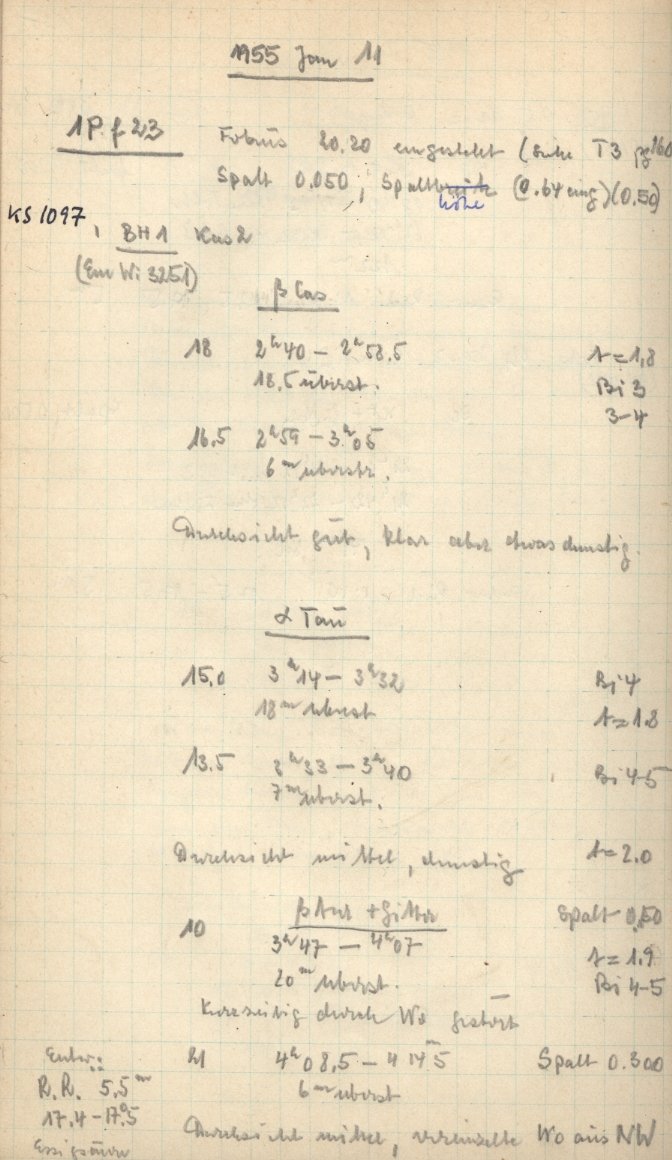 1955 Jan 11
1P. f 23
Fokus 20.20 eingestellt (siehe T3 pg 160
Spalt 0.050, Spaltbreite höhe (0.64 eing) (0.50)
KS 1097
BH1 Kas 2
(Em Wi 3251)
β Cas
18 2h40 – 2h58.5 t=1,8
18,5 überst. Bi 3
3–4
16.5 2h59 – 3h05
6m überstr.
Durchsicht gut, klar aber etwas dunstig.
α Tau
15,0 3h14 – 3h32 Bi 4
18m überst t=1.8
13.5 3h33 – 3h40 Bi 4-5
7m überst.
Durchsicht mittel, dunstig t=2.0
β Aur + Gitter Spalt 0,50
10 3h47 – 4h07 t=1.9
20m überst. Bi 4-5
Kurzzeitig durch Wo gestört
21 4h08,5 – 4 14m5 Spalt 0.300
6m überst
Durchsicht mittel, vereinzelte Wo aus NW
Entw.:
R.R. 5,5m
17.4 – 17°5